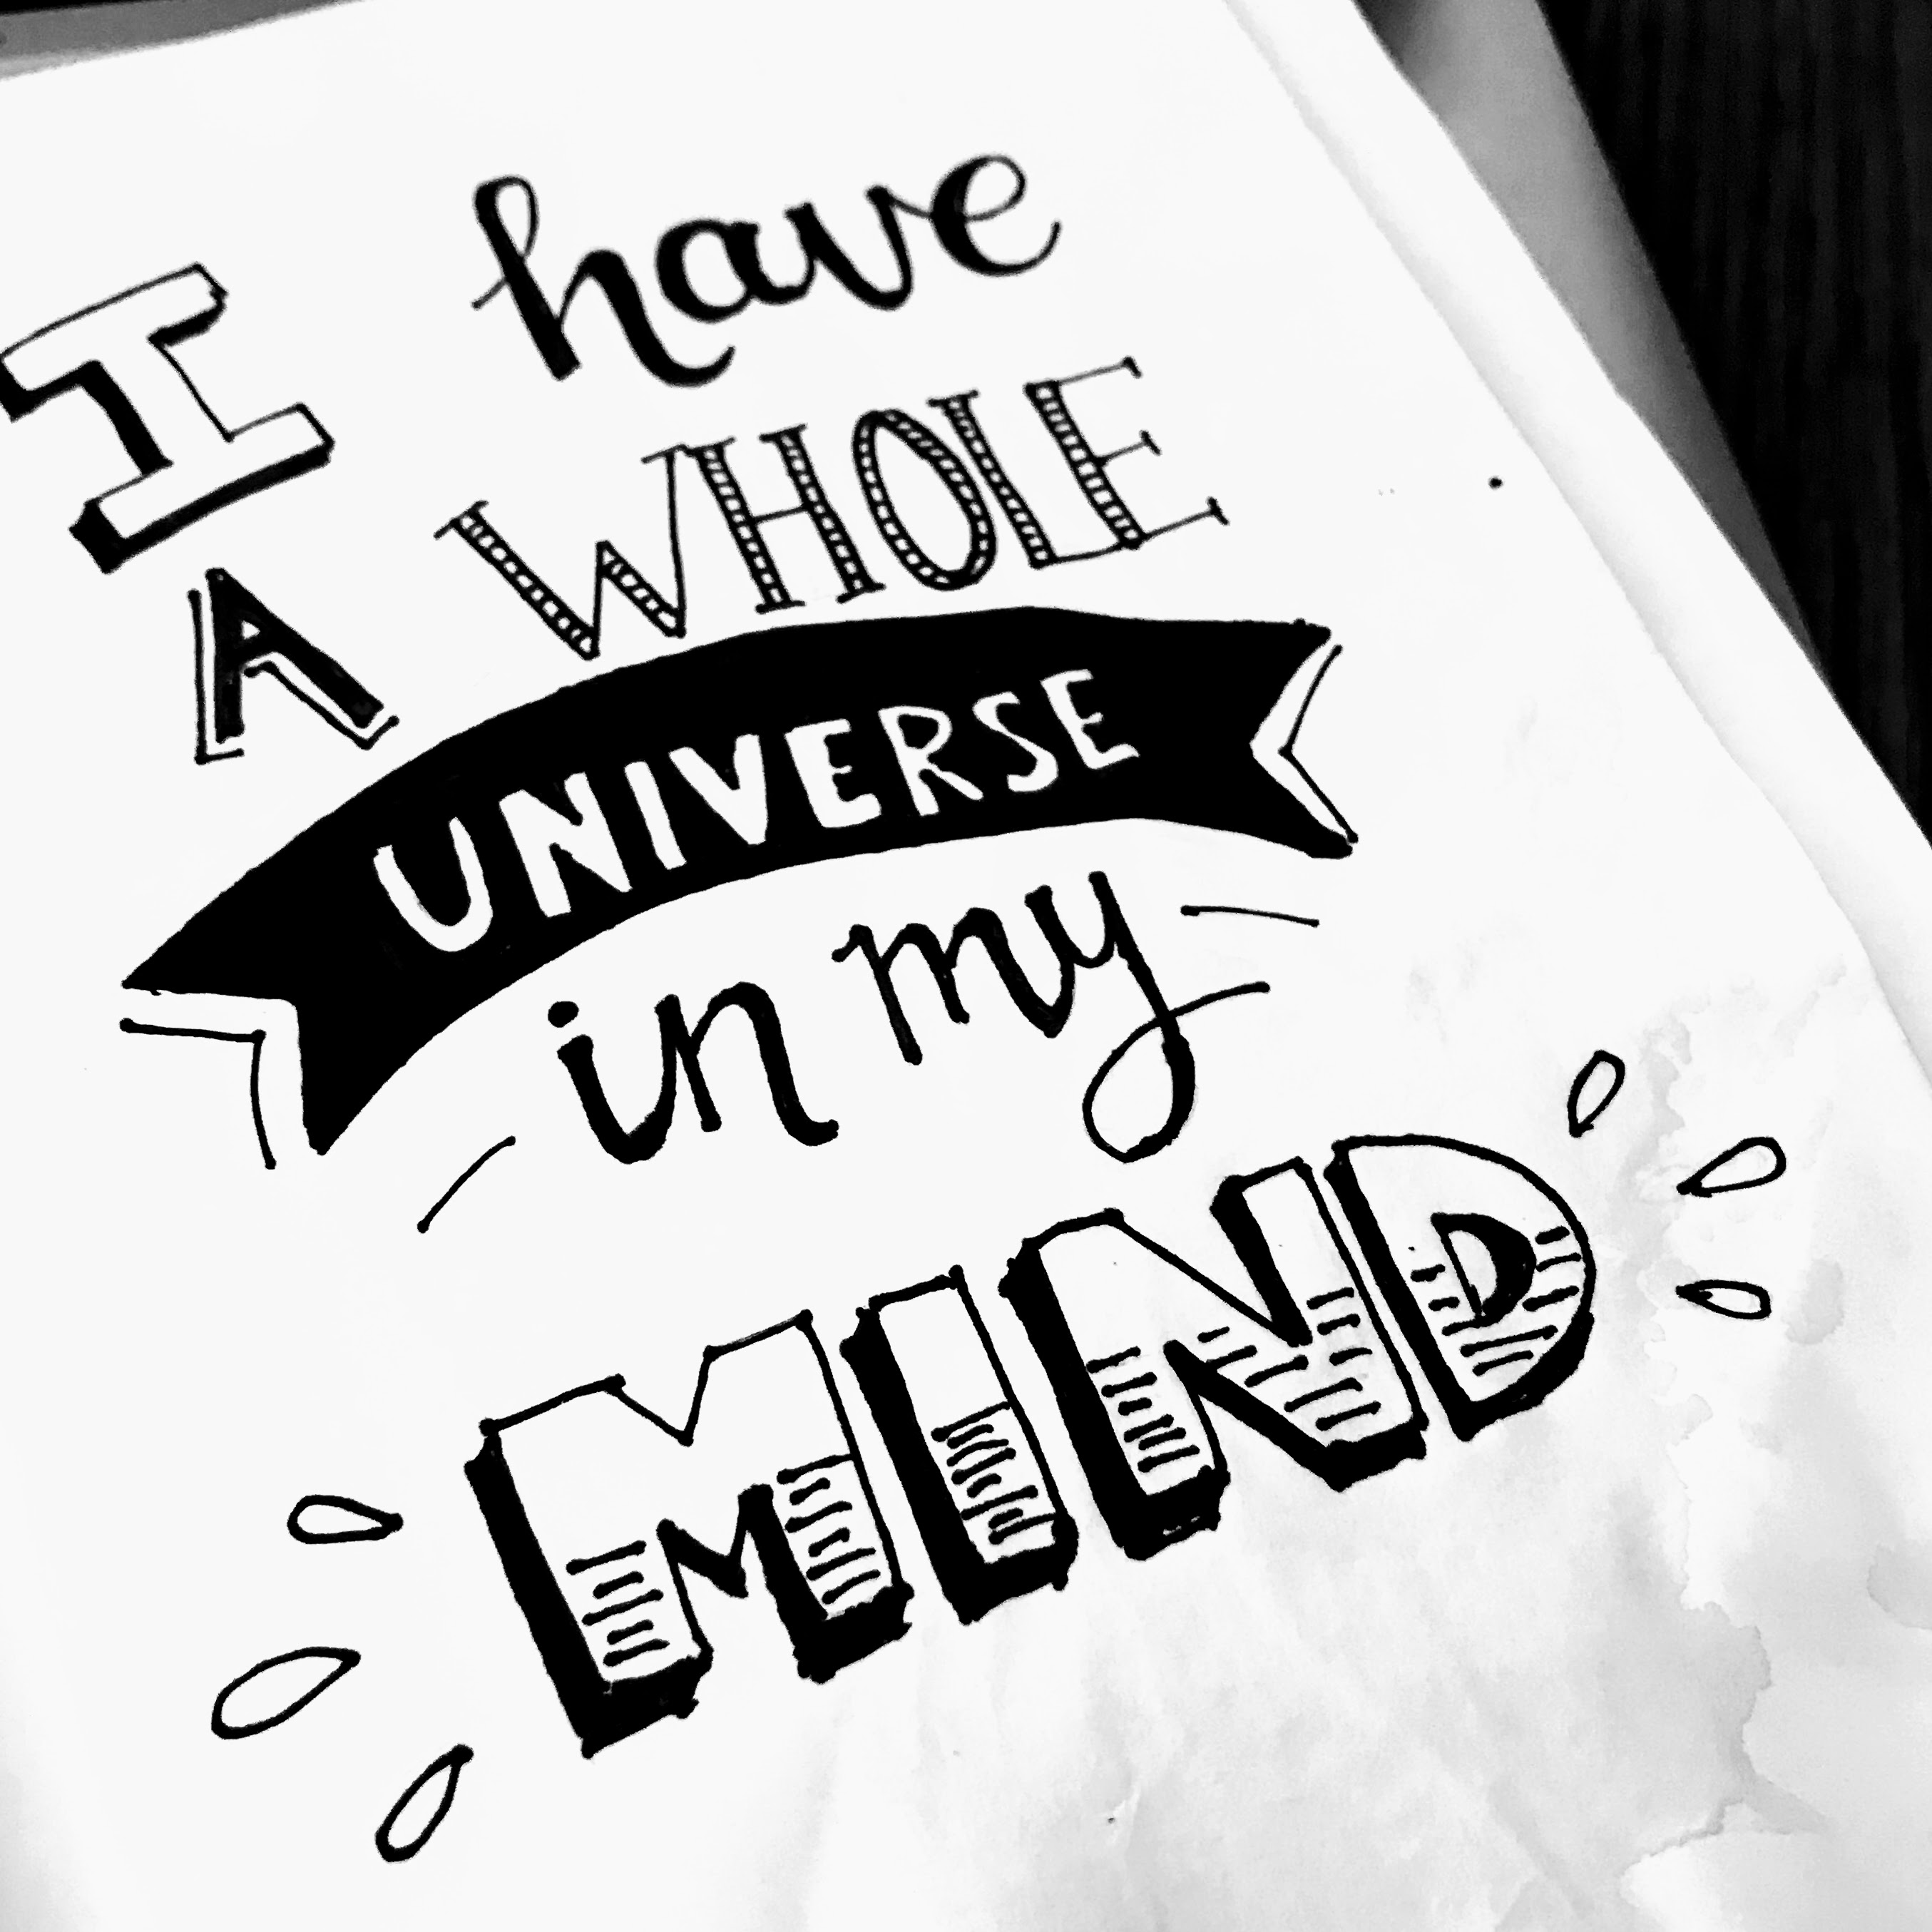 I have
A WHOLE
UNIVERSE
in my
MIND